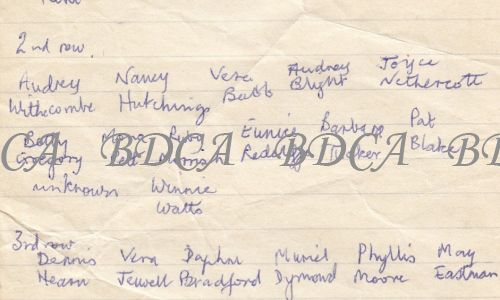 2nd row.
Audrey Nancy Vera Audrey Joyce
Withecombe Hutchings Babb Blight Nethercott
Betty Mona Ruby Eunice Barbara Pat
CA BDCA BDCA BD
Gregory Tucker Blake
unknown Winnie
Watts
3rd row
Dennis Vera Daphne Muriel Phyllis May
Hearn Jewell Bradford Dymond Moore Eastman